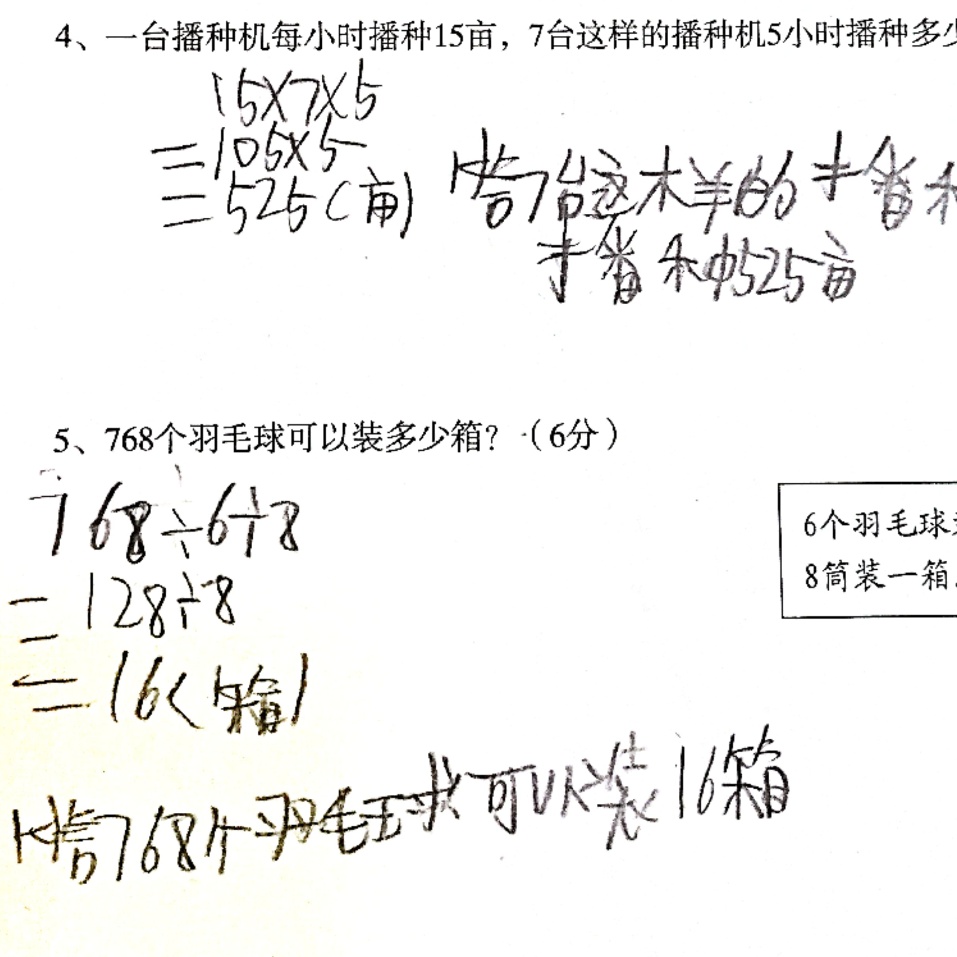 4、一台播种机每小时播种15亩，7台这样的播种机5小时播种多少
15×7×5
=105×5
=525(亩)
答7台这样的播种
播种525亩
5、768个羽毛球可以装多少箱？（6分）
768÷6÷8
=128÷8
=16(箱)
6个羽毛球
8筒装一箱
答768个羽毛球可以装16箱